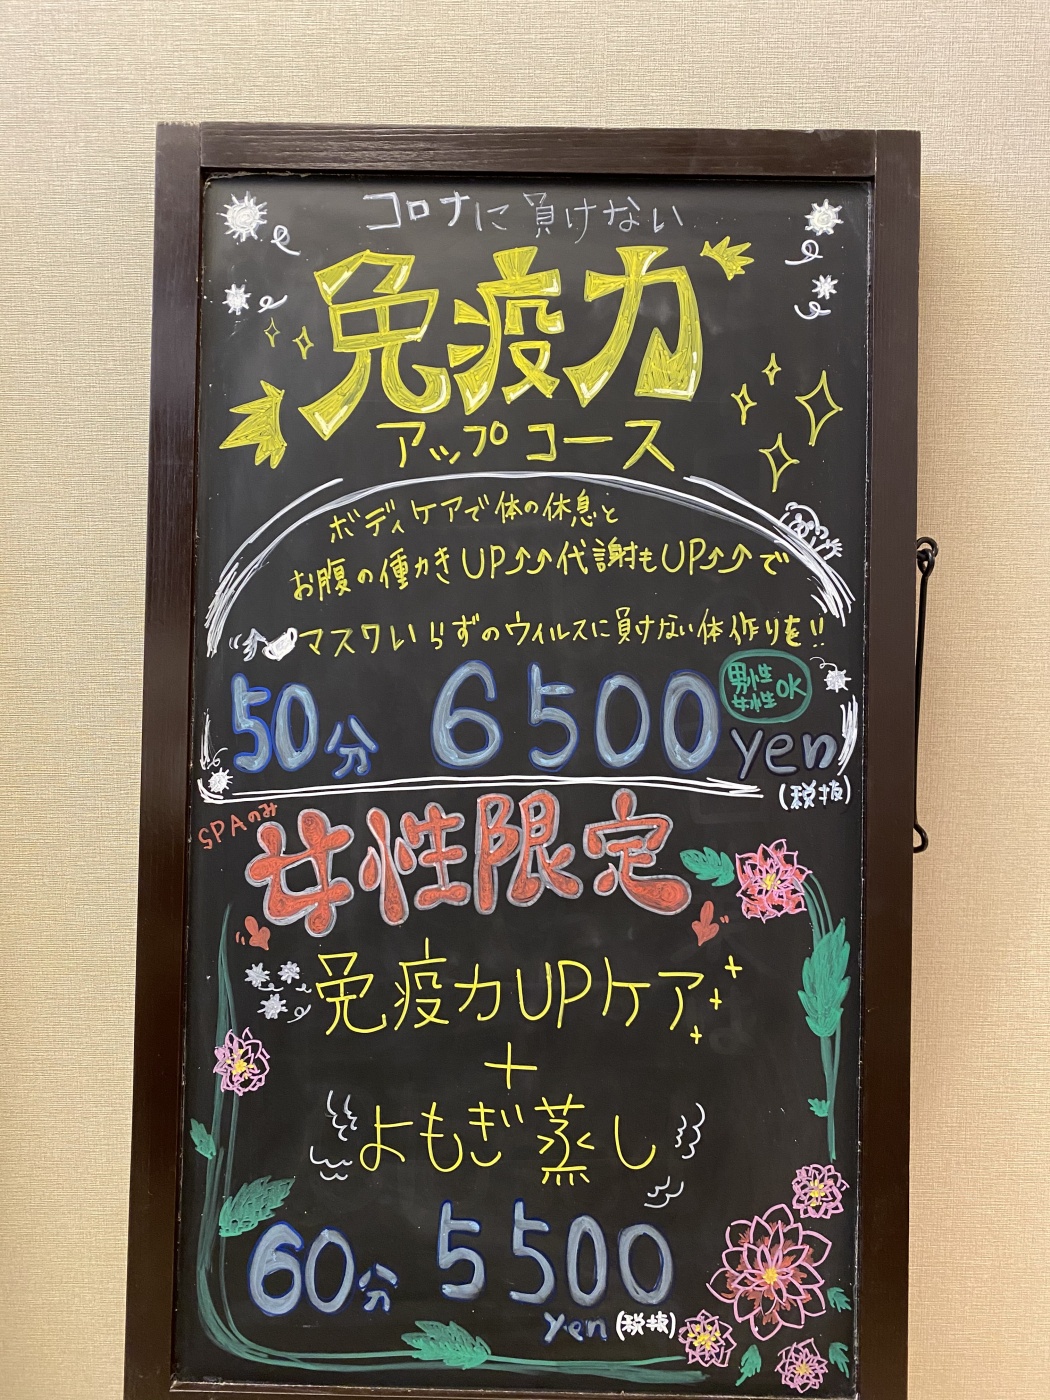 コロナに負けない
免疫力
アップコース
ボディケアで体の休息と
お腹の働かきUP⤴⤴代謝もUP⤴⤴で
マスクいらずのウィルスに負けない体作りを!!
男性
女性OK
50分 6500yen
(税抜)
SPAのみ
女性限定
免疫力UPケア
+
よもぎ蒸し
60分 5500
yen(税抜)